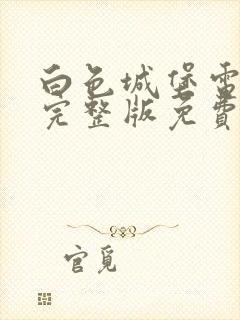 白色城堡电
完整版免费
官觅